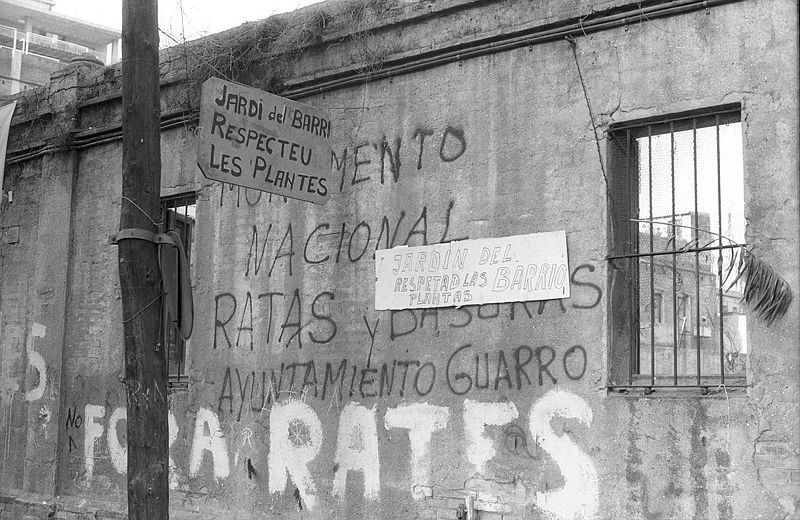 JARDÍ del BARRI
RESPECTEU
LES PLANTES
MONUMENTO
NACIONAL
RATAS y BASURAS
AYUNTAMIENTO GUARRO
JARDIN DEL BARRIO
RESPETAD LAS
PLANTAS
NO
FORA RATES